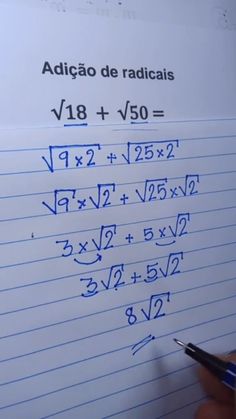 Adição de radicais
√18 + √50 =
√9×2 + √25×2
√9×√2 + √25×√2
3×√2 + 5×√2
3√2 + 5√2
8√2